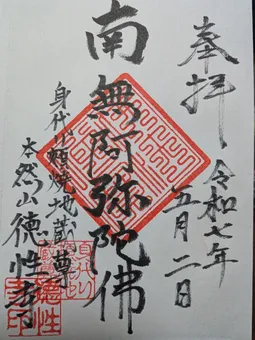 奉拝 令和七年
五月二日
南無阿弥陀佛
身代り頬焼地蔵尊
本然山 徳性寺